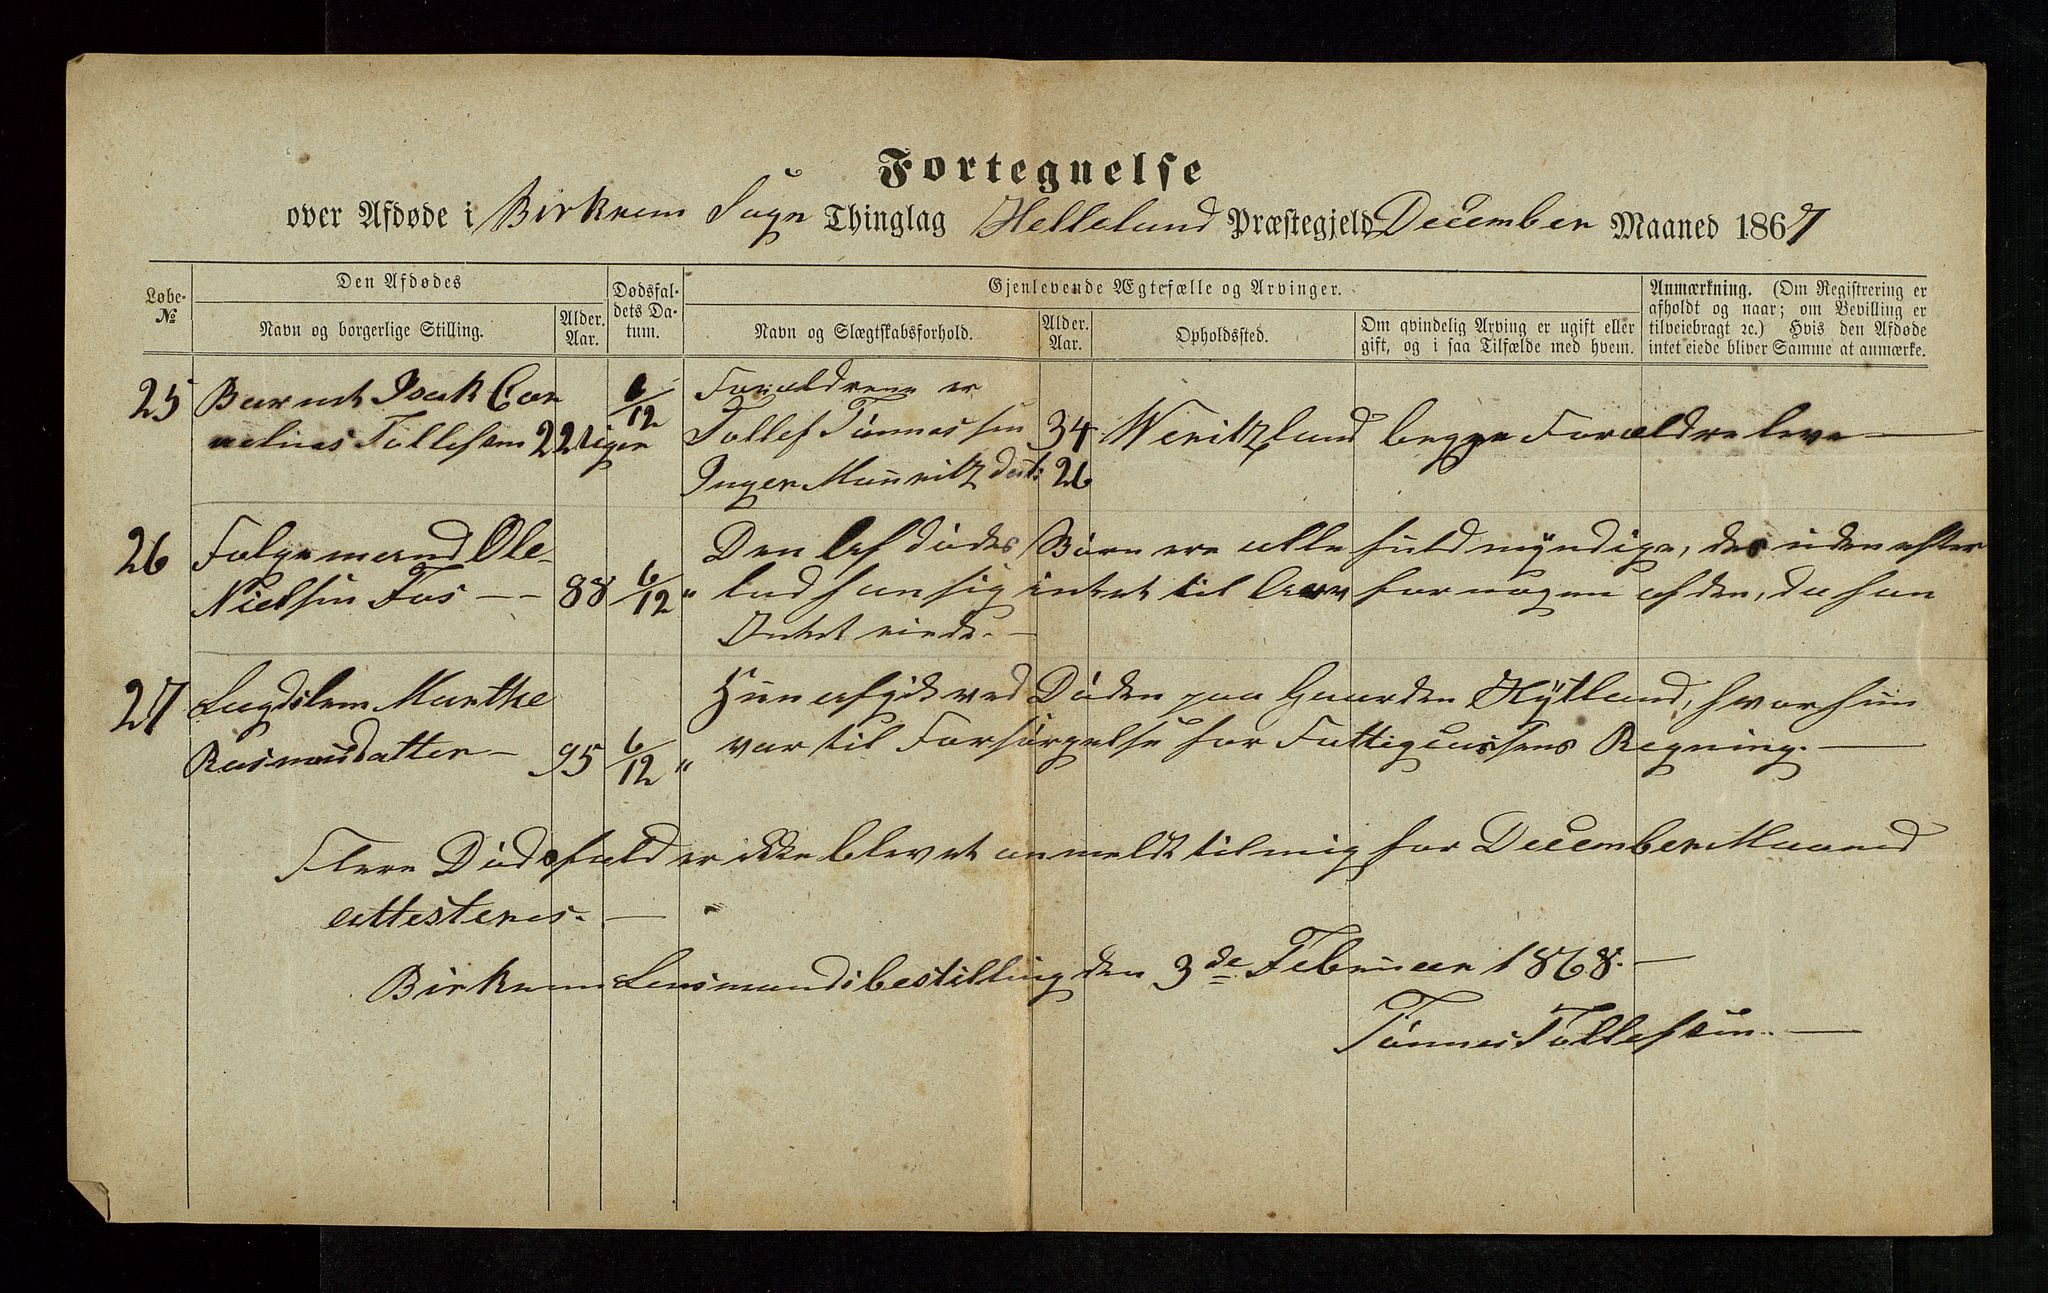 Fortegnelse
over Afdøde i Birkrem Sogn Thinglag Helleland Præstegjeld December Maaned 1867
Løbe-
№
Den Afdødes
Navn og borgerlige Stilling.
Alder.
Aar.
Dødsfal-
dets Da-
tum.
Gjenlevende Ægtefælle og Arvinger.
Navn og Slægtskabsforhold.
Alder.
Aar.
Opholdssted.
Om qvindelig Arving er ugift eller
gift, og i saa Tilfælde med hvem.
Anmærkning. (Om Registrering er
afholdt og naar; om Bevilling er
tilveiebragt ꝛc.) Hvis den Afdøde
intet eiede bliver Samme at anmærke.
25 Barnet Isak Cor
nelius Tollefsen 22 6/12
Forældrene er
Tollef Tønnessen 34 begge Forældre leve —
Inger Mauritzdatt: 26
26 Følgemand Ole
Nielsen Fos — — 88 6/12 "
Den Afdødes Børn ere alle fuldmyndige, des uden efter
lod han sig intet til Arv for nogen af dem, da han
Intet eiede. —
27 Lægdslem Marthe
Rasmusdatter — 95 6/12 "
Hun afgik ved Døden paa Gaarden Hytland, hvor hun
var til Forsørgelse for Fattigcassens Regning. —
Flere Dødsfald er ikke blevet anmeldt til mig for December Maaned
attesteres. —
Birkrem Lensmandsbestilling den 3de Februar 1868. —
Tønnes Tollefsen. —